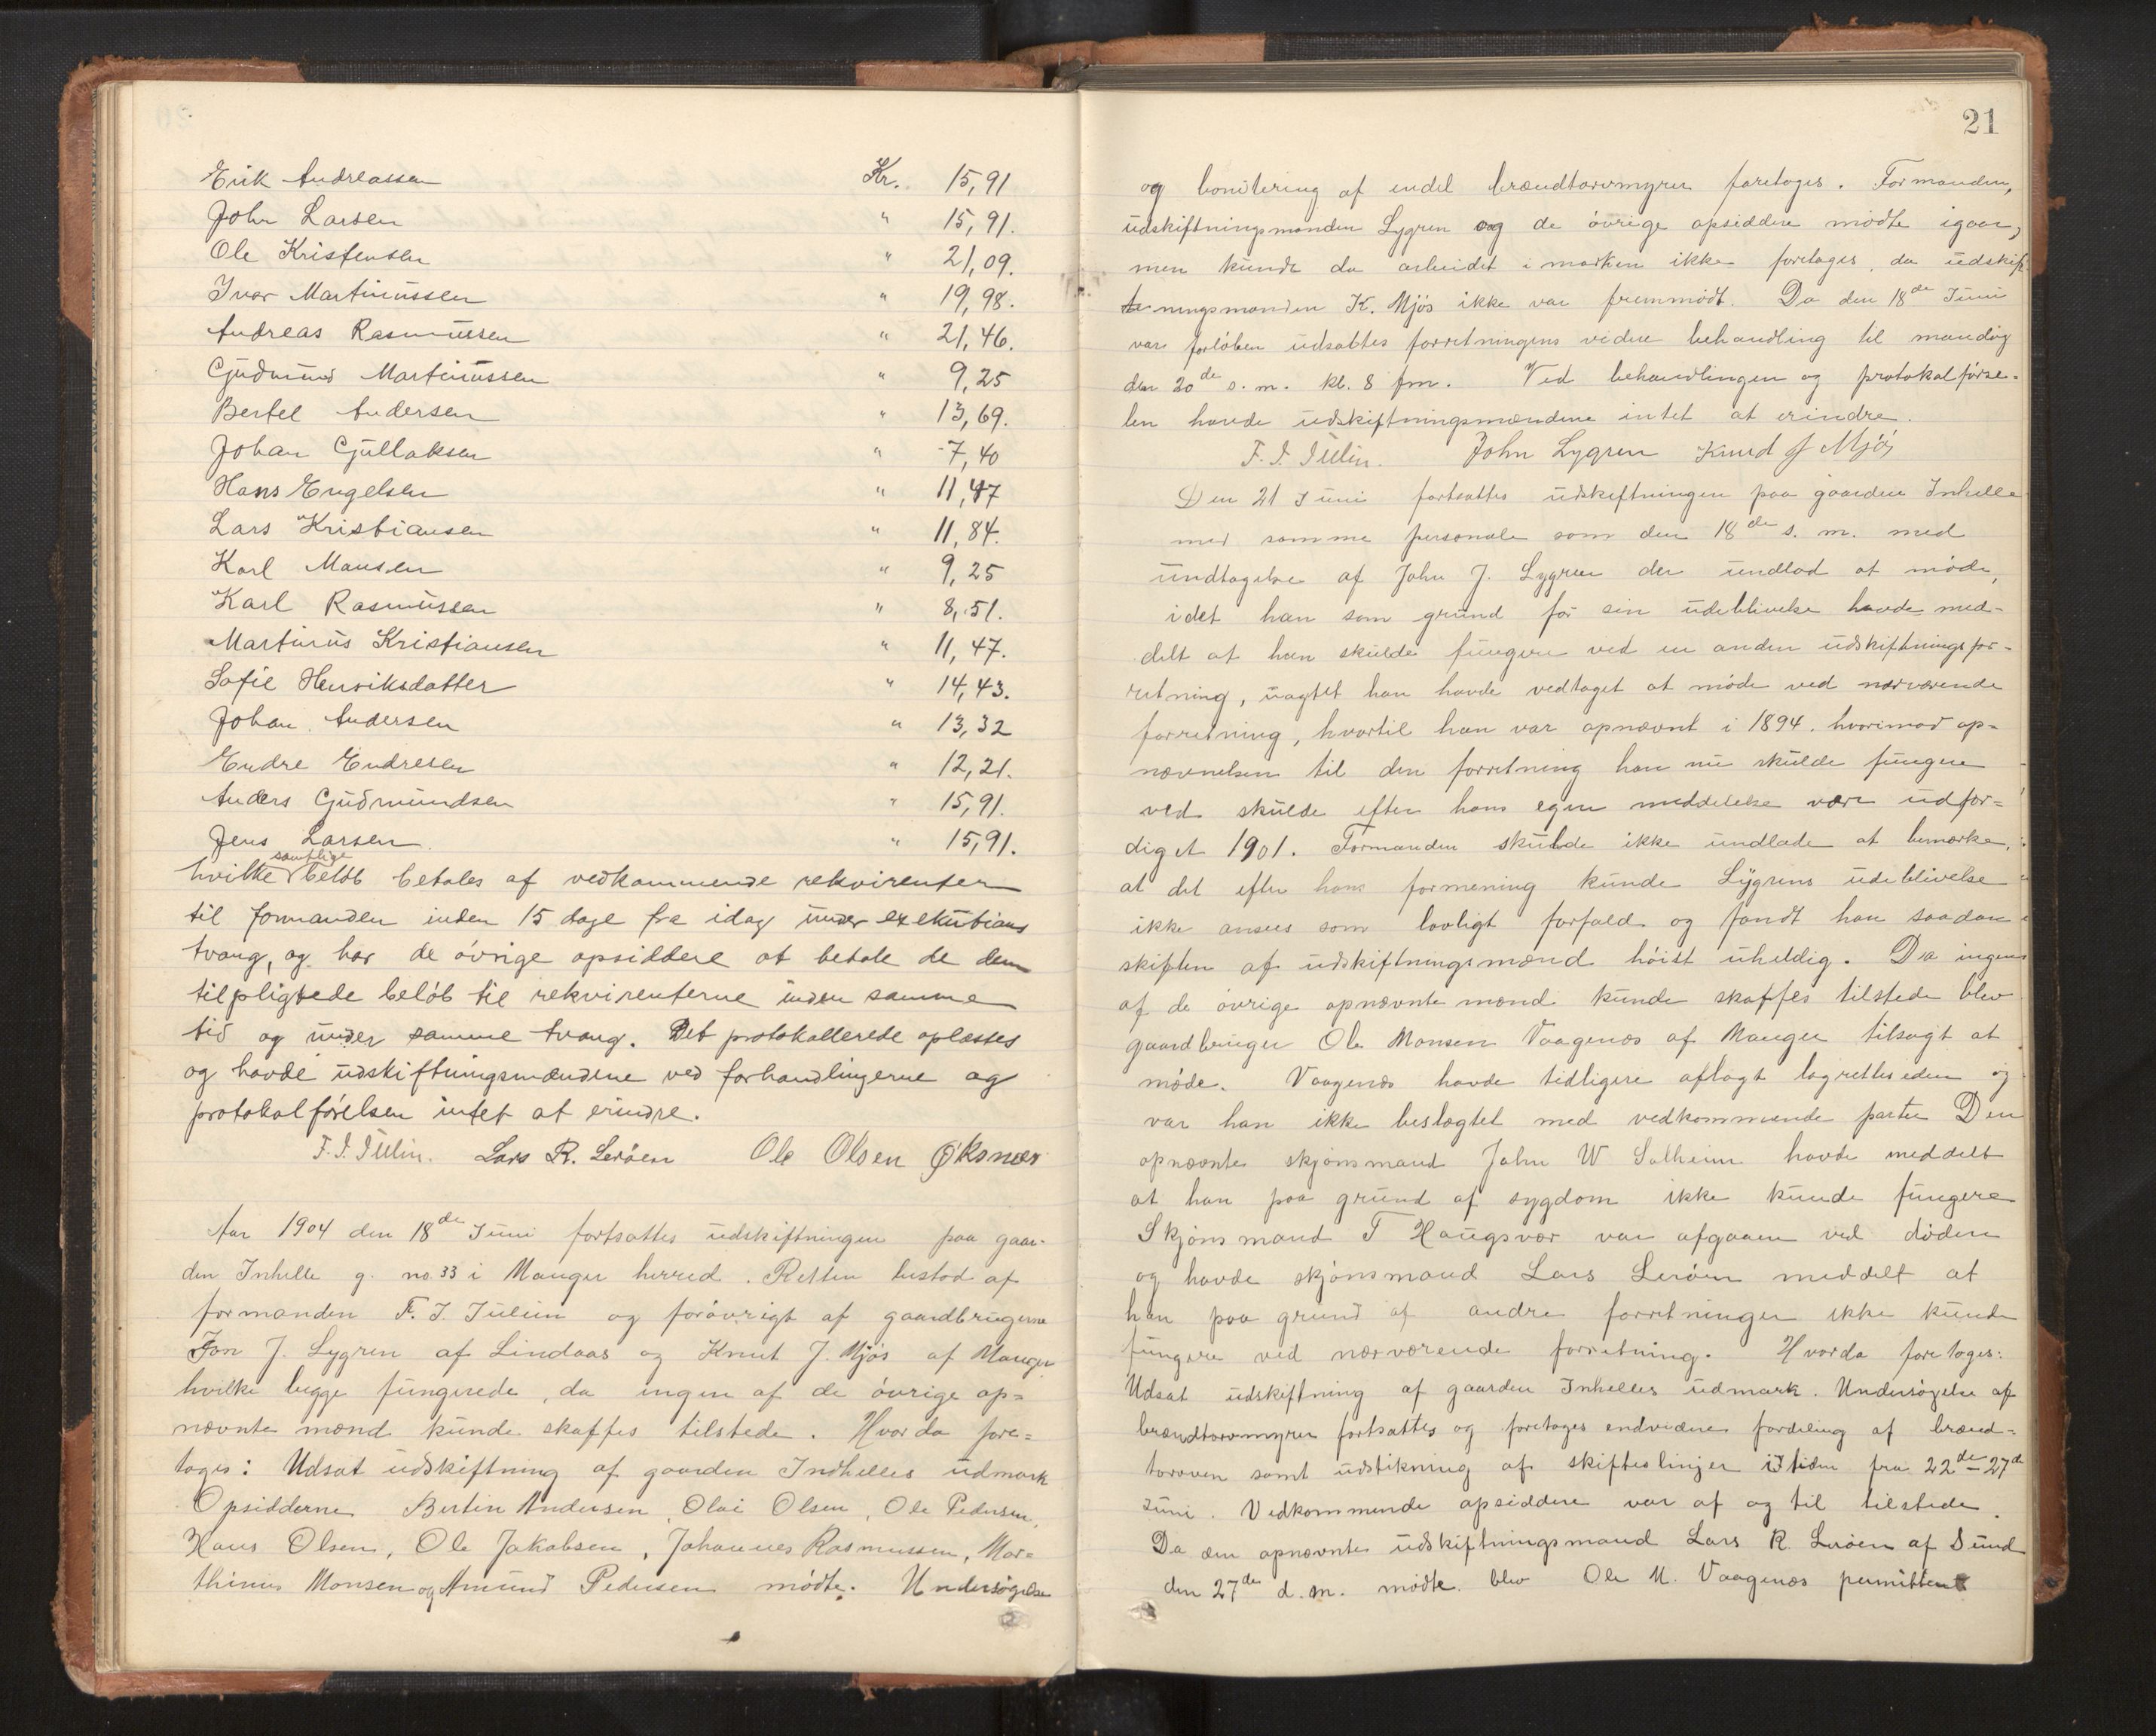 Erik Andreassen Kr. 15,91
John Larsen " 15,91.
Ole Kristensen " 21,09.
Ivar Martinussen " 19,98.
Andreas Rasmussen " 21,46.
Gjüdmünd Martinüssen " 9,25
Bertel Andersen " 13,69.
Johan Gjüllaksen " 7,40
Hans Engelsen " 11,47
Lars Kristiansen " 11,84.
Karl Monsen " 9,25
Karl Rasmüssen " 8,51.
Martinüs Kristiansen " 11,47.
Sofie Henriksdatter " 14,43.
Johan Andersen " 13,32
Endre Endresen " 12,21.
Anders Güdmündsen " 15,91.
Jens Larsen. " 15,91.
hvilke samtlige beløb betales af vedkommende rekvirenter
til formanden inden 15 dage fra idag ünder exekütions
tvang, og har de øvrige opsiddere at betale de dem
tilpligtede beløb til rekvirenterne inden samme
tid og ünder samme tvang. Det protokollerede oplæstes
og havde üdskiftningsmændene ved forhandlingerne og
protokolførelsen intet at erindre.
F. I. Iülin. Lars R. Lerøen Ole Olsen Øksnes
Aar 1904 den 18de Jüni fortsattes üdskiftningen paa gaar-
den Inhelle g. no. 33 i Manger herred. Retten bestod af
formanden F. I. Iülin og forøvrigt af gaardbrügerne
Jon J. Lygren af Lindaas og Knut J. Mjøs af Manger
hvilke begge füngerede, da ingen af de øvrige op=
nævnte mænd künde skaffes tilstede. Hvorda fore=
toges: Udsat üdskiftning af gaarden Indhelles üdmark
Opsidderne Bertin Andersen, Olai Olsen, Ole Pedersen,
Hans Olsen, Ole Jakobsen, Johannes Rasmussen, Mar=
thinus Monsen og Amünd Pedersen mødte. Undersøgelse
21
og bonitering af endel brændtorvmyrer foretoges. Formanden,
üdskiftningsmanden Lygren og de øvrige opsiddere mødte igaar,
men künde da arbeidet i marken ikke foretages, da üdskift
ningsmanden K. Mjøs ikke var fremmødt. Da den 18de Jüni
var forløben üdsattes forretningens videre behandling til mandag
den 20de s. m. kl. 8 fm. Ved behandlingen og protokolførse-
len havde üdskiftningsmændene intet at erindre.
F. I. Iülin. John Lygren Knud J Mjøs
Den 21 Jüni fortsattes üdskiftningen paa gaarden Inhelle
med samme personale som den 18de s. m. med
ündtagelse af John J. Lygren der ündlod at møde,
idet han som gründ for sin üdeblivelse havde med-
delt at han skülde füngere ved en anden üdskiftningsfor-
retning, üagtet han havde vedtaget at møde ved nærværende
forretning, hvortil han var opnævnt i 1894. hvorimod op-
nævnelsen til den forretning han nü skülde füngere
ved skülde efter hans egen meddelelse være üdfør=
diget 1901. Formanden skülde ikke ündlade at bemærke,
at det efter hans formening künde Lygrens üdeblivelse
ikke ansees som lovligt forfald og fandt han saadan
skiften af üdskiftningsmænd høist üheldig. Da ingen
af de øvrige opnævnte mænd künde skaffes tilstede blev
gaardbrüger Ole Monsen Vaagenæs af Manger tilsagt at
møde. Vaagenæs havde tidligere aflagt lagretteseden og
var han ikke beslægtet med vedkommende parter Den
opnævnte skjønsmand John W Solheim havde meddelt
at han paa gründ af sygdom ikke künde füngere
Skjønsmand T Haügsvær var afgaaen ved døden
og havde skjønsmand Lars Lerøen meddelt at
han paa gründ af andre forretninger ikke künde
füngere ved nærværende forretning. Hvorda foretoges:
Udsat üdskiftning af gaarden Inhelles üdmark. Undersøgelse af
brændtorvmyrer fortsattes og foretoges endvidere fordeling af brænd-
torven samt üdstikning af skifteslinjer i tiden fra 22de-27de
Jüni. Vedkommende opsiddere var af og til tilstede.
Da den opnævnte üdskiftningsmand Lars R. Lerøen af Sünd
den 27de d. m. mødte blev Ole M. Vaagenæs permitteret